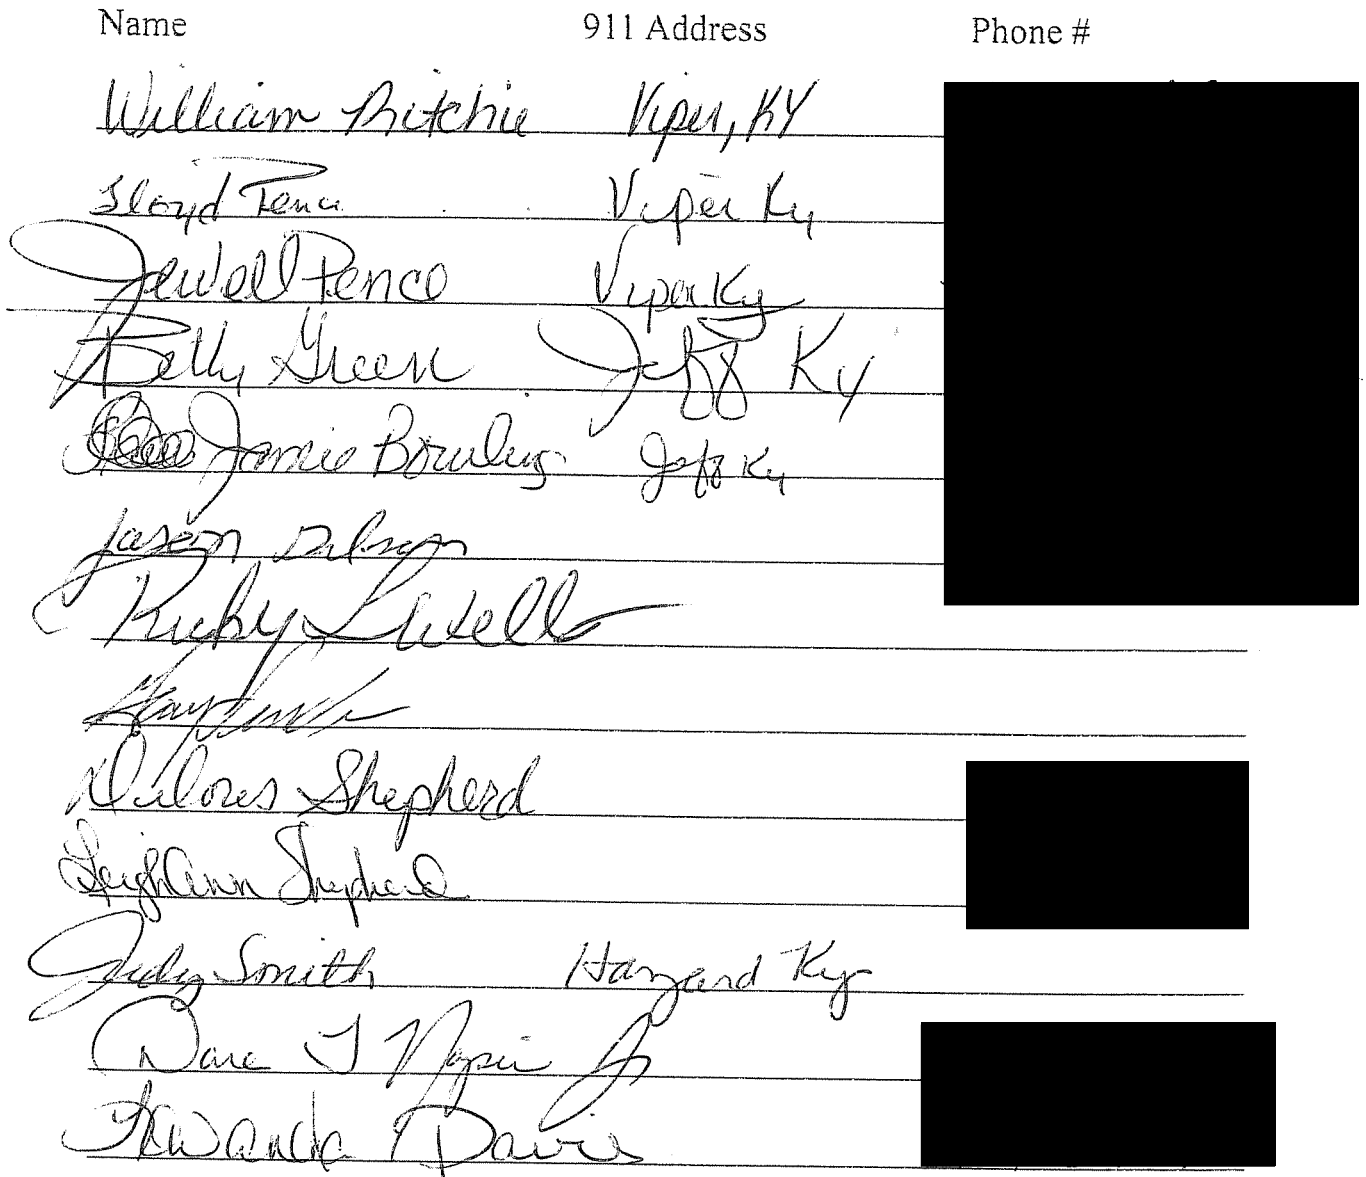 Name 911 Address Phone #
William Ritchie Viper, KY
Floyd Pence Viper Ky
Jewell Pence Viper Ky
Betty Green Jeff Ky
Jamie Bowling Jeff Ky
Jason
Ricky
Delores Shepherd
LeighAnn Shepherd
Judy Smith Hazard Ky
Dave J Napier Jr
Lawanda Davis